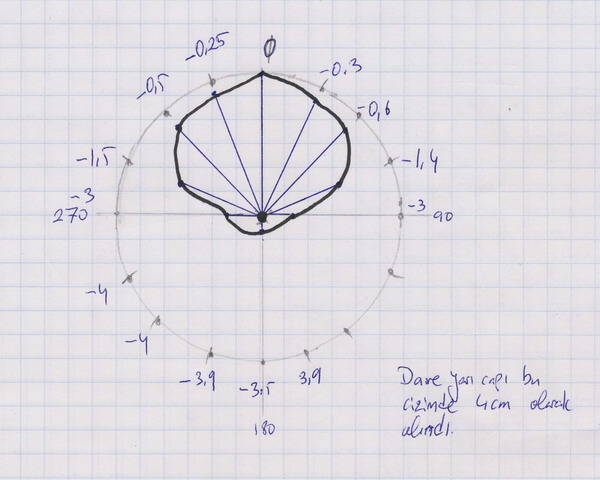 0
-0,25
-0,3
-0,5
-0,6
-1,5
-1,4
-3
-3
270
90
-4
-4
-3,9
-3.5
3,9
180
Daire yarı çapı bu
çizimde 4cm olarak
alındı.